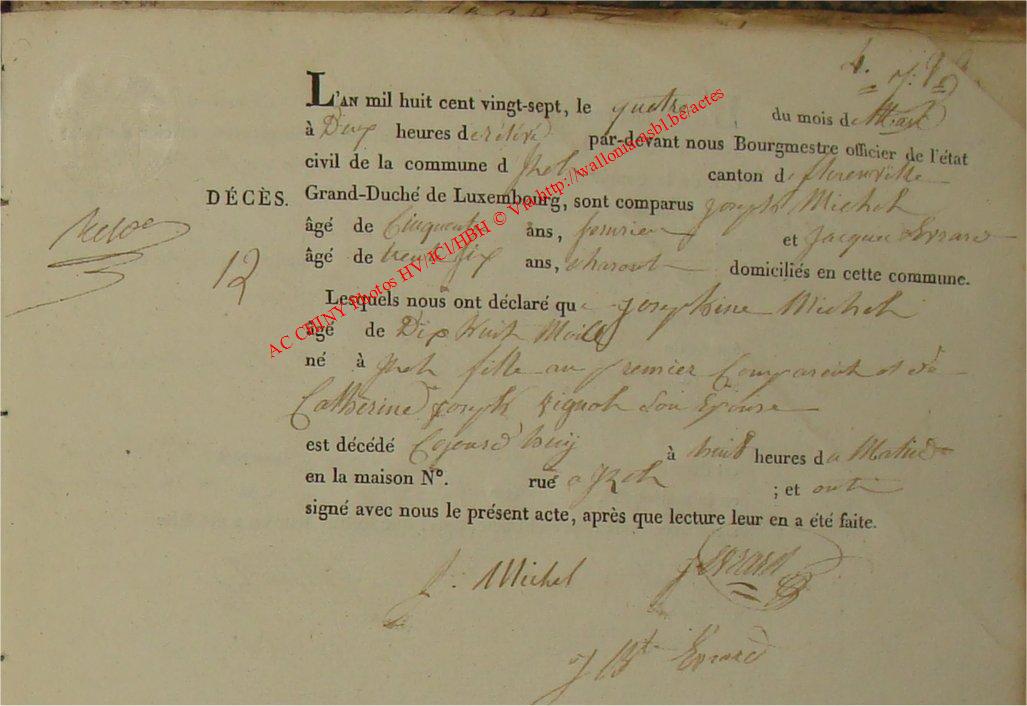 L'AN mil huit cent vingt-sept, le quatre du mois de Mars
à Deux heures de relevé par-devant nous Bourgmestre officier de l'état
civil de la commune d Izel canton de florenville
DÉCÈS. Grand-Duché de Luxembourg, sont comparus joseph Michel
âgé de Cinquante ans, et jacques Evrard
12
âgé de trente six ans, charon domiciliés en cette commune.
Lesquels nous ont déclaré que josephine Michel
âgé de Dix huit Mois
né à Izel fille au premier Comparent et de
Catherine joseph son Epouse
est décédé à huit heures du Matin
en la maison N°. rue a Izel ; et ont
signé avec nous le présent acte, après que lecture leur en a été faite.
J. Michel J Evrard
J Bte Evrard
AC CHINY Photos HV/JCl/HBH © Via http://walloniaasbl.be/actes